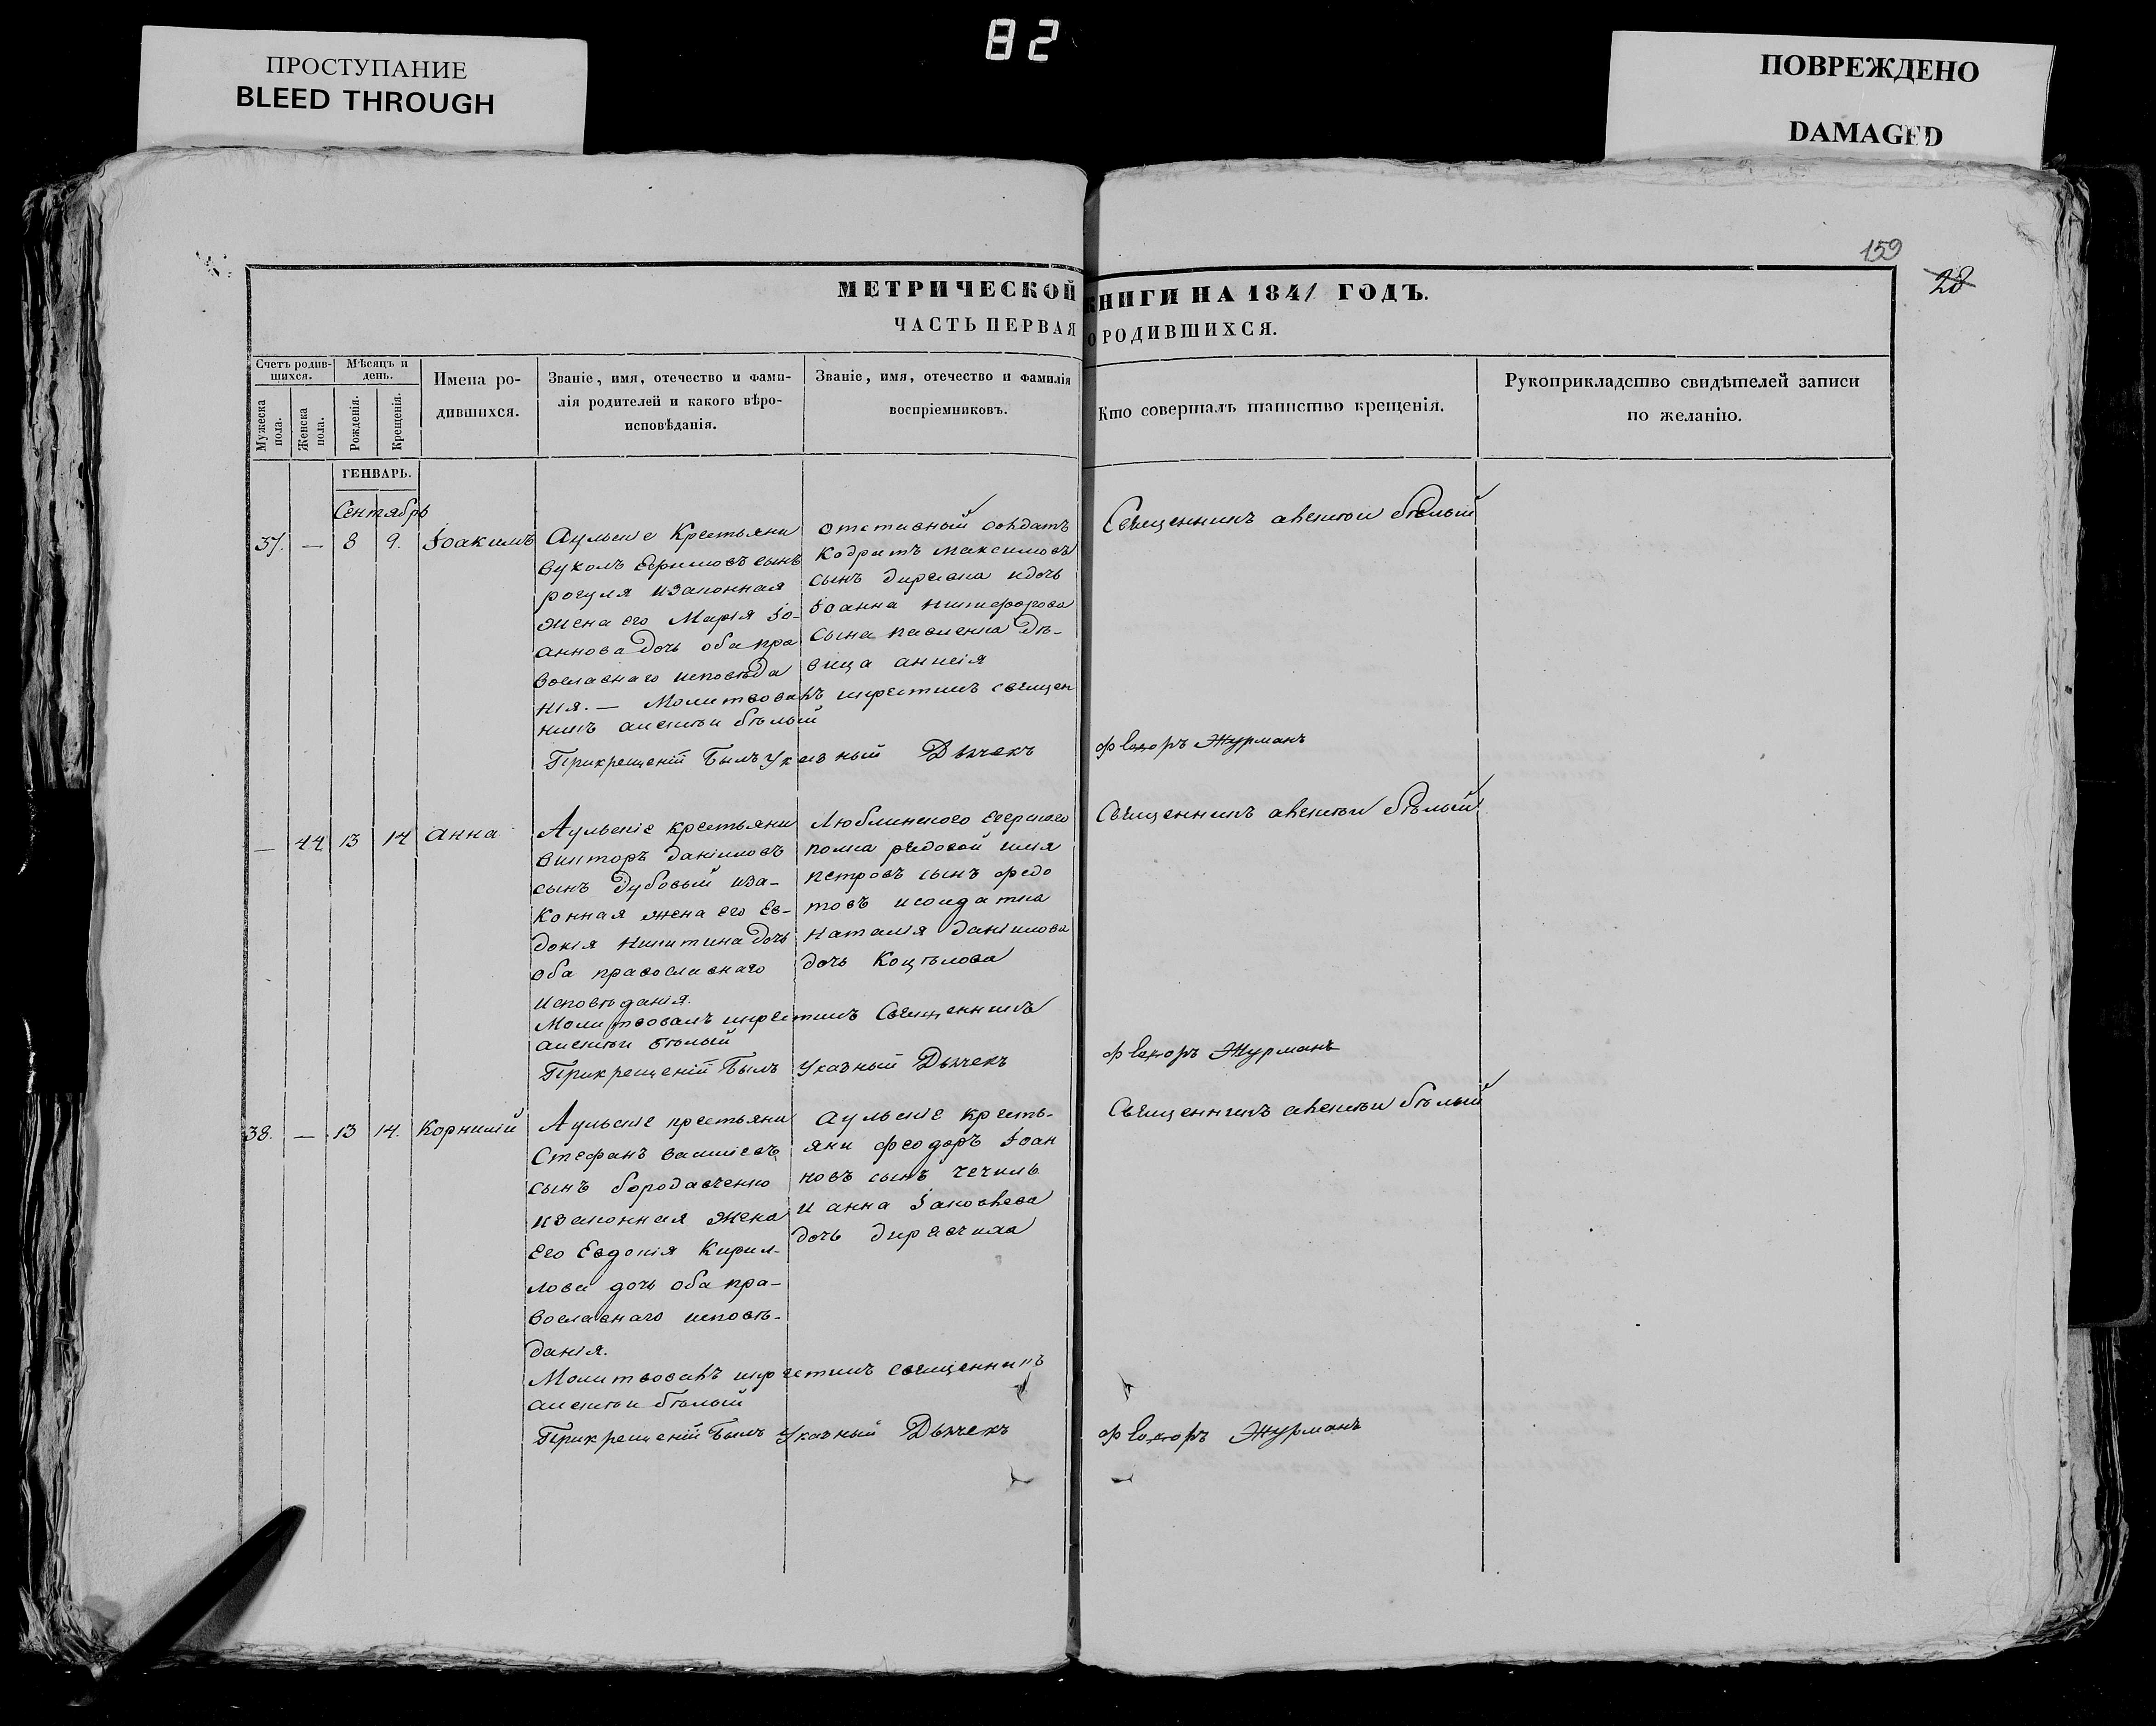 82
ПРОСТУПАНИЕ
BLEED THROUGH
ПОВРЕЖДЕНО
DAMAGED
159
28
МЕТРИЧЕСКОЙ КНИГИ НА 1841 ГОДЪ.
ЧАСТЬ ПЕРВАЯ О РОДИВШИХСЯ.
Счетъ родив-
шихся.
Мужеска
пола.
Женска
пола.
Мѣсяцъ и
день.
Рожденія.
Крещенія.
Имена ро-
дившихся.
Званіе, имя, отечество и фами-
лія родителей и какого вѣро-
исповѣданія.
Званіе, имя, отечество и фамилія
воспріемниковъ.
Кто совершалъ таинство крещенія.
Рукоприкладство свидѣтелей записи
по желанію.
ГЕНВАРЬ.
Сентябрь
37. — 8 9. Іоакимъ
Аульскіе Крестьяни
вуколъ Ефимовъ сынъ
рогуля изаконная
жена его Марія Іо-
аннова дочь оба пра
вославнаго исповѣда
нія. — Молитвовалъ икрестилъ священ
никъ алексѣй бѣлый
отставный солдатъ
Кодратъ максимовъ
сынъ идочь
Іоанна никифорова
сына павленка дѣ-
вица анисія
Священникъ алексѣй бѣлый
Прикрещеній былъ Указный Дьячекъ Феодоръ Журманъ
— 44 13 14 анна
Аульскіе крестьяни
викторъ даніиловъ
сынъ Дубовый иза-
конная жена его Ев-
докія никитина дочь
оба православнаго
исповѣданія.
Молитвовалъ икрестилъ Священникъ
алексѣй бѣлый
Люблинского егерского
полка рядовой илія
петровъ сынъ федо
товъ исолдатка
наталія даніилова
дочь Коцѣлова
Священникъ алексѣй бѣлый
Прикрещеній былъ Указный Дьячекъ Феодоръ Журманъ
38. — 13 14. Корнилій
Аульскіе крестьяни
Стефанъ василіевъ
сынъ бородавченко
изаконная жена
его Евдокія Кирил-
лова дочь оба пра-
вославнаго исповѣ-
данія.
Молитвовалъ икрестилъ священникъ
алексѣй бѣлый
аульскіе кресть-
яни феодоръ Іоан
новъ сынъ чечиль
и анна Іаковлева
дочь
Священникъ алексѣй бѣлый
Прикрещеній былъ Указный Дьячекъ Феодоръ Журманъ